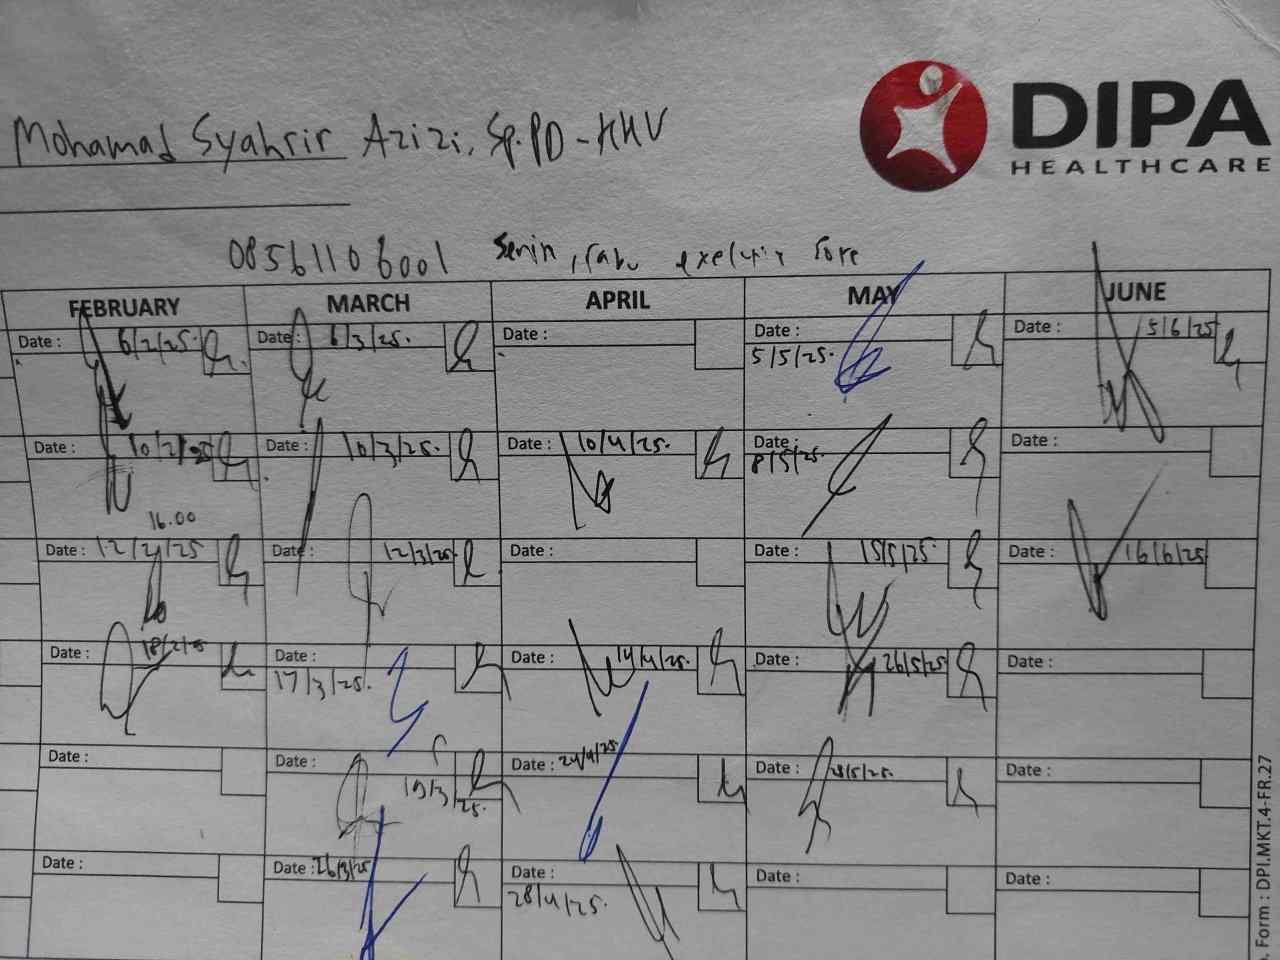 DIPA
HEALTHCARE
Mohamad Syahrir Azizi, Sp.PD-KHV
085611106001 Senin, rabu sore
FEBRUARY MARCH APRIL MAY JUNE
Date : 6/2/25. Date : 6/3/25. Date : Date : 5/5/25. Date : 5/6/25
Date : 10/2/25 Date : 10/3/25. Date : 10/4/25. Date : 8/5/25. Date :
16.00
Date : 12/2/25 Date : 12/3/25 Date : Date : 15/5/25. Date : 16/6/25
Date : 18/2/25 Date : 17/3/25. Date : 14/4/25. Date : 26/5/25 Date :
Date : Date : 19/3/25. Date : 24/4/25. Date : 28/5/25. Date :
Date : Date : 26/3/25 Date : 28/4/25. Date : Date :
Form : DPI.MKT.4-FR.27